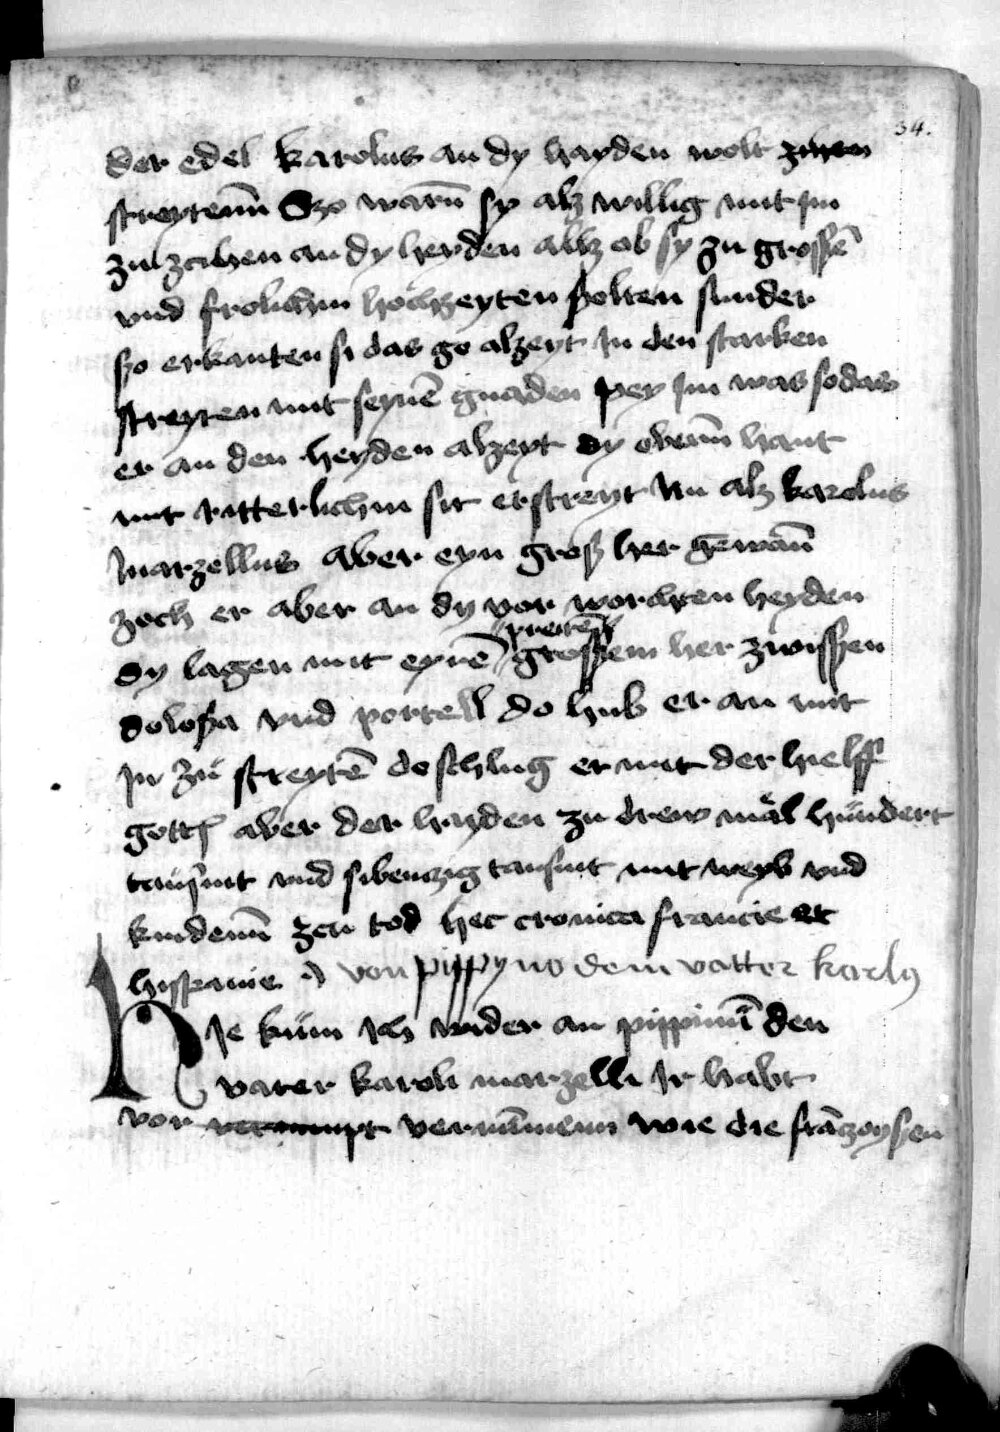 34.
der edel karolus an dy hayden wolt zihen
streytenn Szo warn sy alz willig mit Im
zu zcihen an dy heyden allz ob sy zu grossē
vnd frolichñ hochzeyten szolten sunder
szo erkanten si das go alzeyt In den starken
streyten mit seynē gnaden pey Im was so das
er an den heyden alzeyt dy obenn hant
mit ritterlichñ sit erstreyt Nu alz karolus
Marzellus aber eyn grosz her gewan
zoch er aber an dy vor worchten heyden
preiten
dy lagen mit eynē grossem her zwisszen
dolosza vnd portell do hub er an mit
In zu streytē do schlug er mit der hielff
gottes aber der hayden zu drew mal hundert
tausint vnd sibenczig tausint mit weyb vnd
kindenn zcu tod hec cronica francie et
hispanie von pippyno dem vatter karly
Hie kum Ich wider an pippinū den
vater karoli marzelli Ir habt
vor vernūmenn wie die frāczoyszen